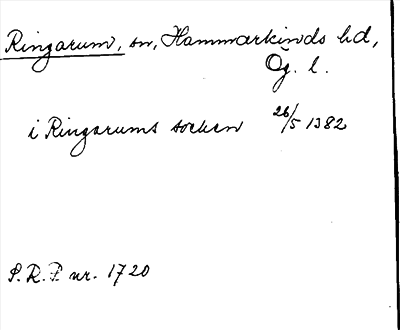 Ringarum, sn, Hammarkinds hd,
Ög. l.
i Ringarums socken 26/5 1382
S. R. P. nr. 1720